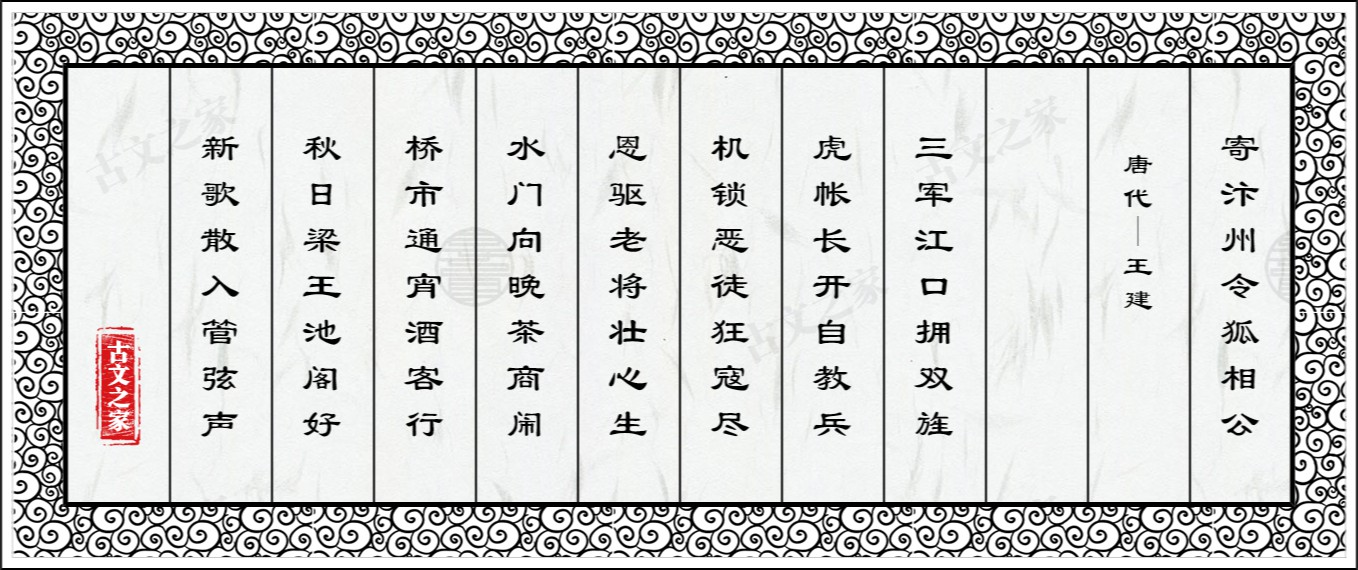 寄汴州令狐相公
唐代—王建
三军江口拥双旌
虎帐长开自教兵
机锁恶徒狂寇尽
恩驱老将壮心生
水门向晚茶商闹
桥市通宵酒客行
秋日梁王池阁好
新歌散入管弦声
古文之家